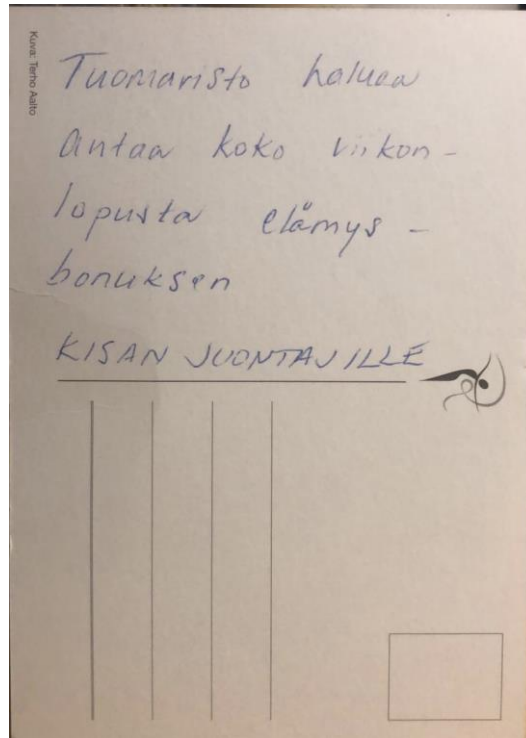 Kuva: Terho Aalto
Tuomaristo haluaa
antaa koko viikon-
lopusta elämys-
bonuksen
KISAN JUONTAJILLE